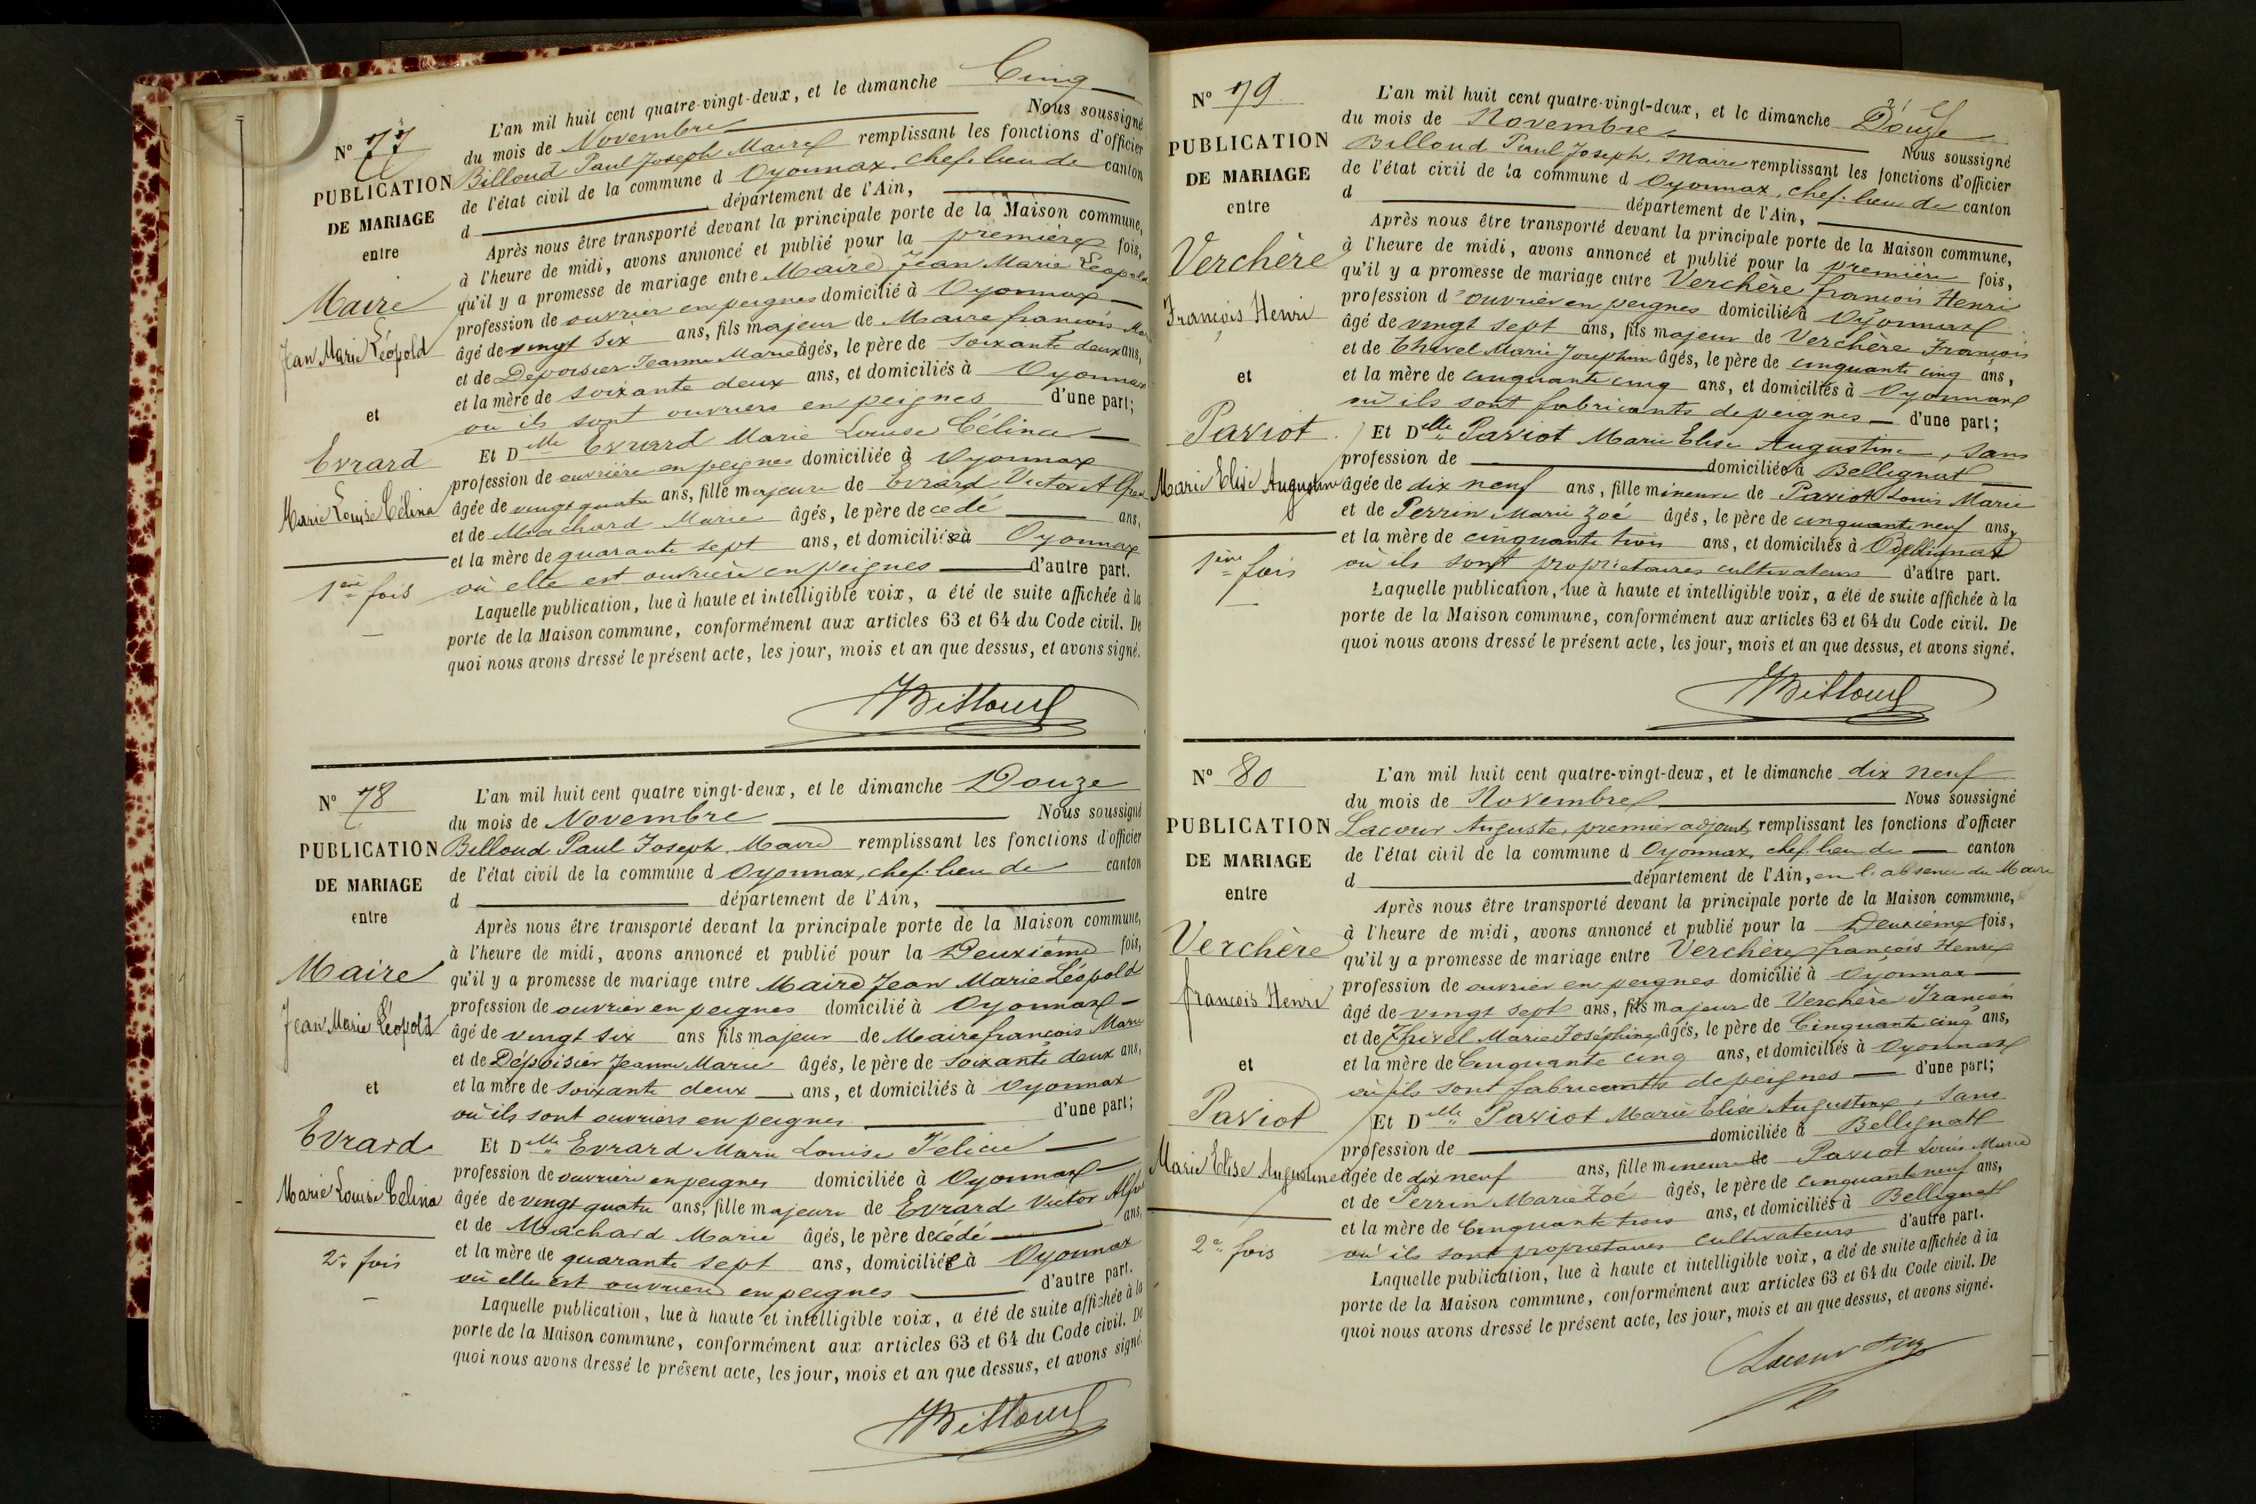 N° 77
PUBLICATION
DE MARIAGE
entre
Maire
Jean Marie Léopold
et
Evrard
Marie Louise Célina
1ère fois
L'an mil huit cent quatre-vingt-deux, et le dimanche Cinq
du mois de Novembre Nous soussigné
Billoud Paul Joseph Maire remplissant les fonctions d'officier
de l'état civil de la commune d Oyonnax, chef-lieu de canton
d département de l'Ain,
Après nous être transporté devant la principale porte de la Maison commune,
à l'heure de midi, avons annoncé et publié pour la première fois,
qu'il y a promesse de mariage entre Maire Jean Marie Léopold
profession de ouvrier en peignes domicilié à Oyonnax
âgé de vingt six ans, fils majeur de Maire françois Marie
et de Dépoisier Jeanne Marie âgés, le père de soixante deux ans,
et la mère de soixante deux ans, et domiciliés à Oyonnax
où ils sont ouvriers en peignes d'une part;
Et Delle Evrard Marie Louise Célina
profession de ouvrière en peignes domiciliée à Oyonnax
âgée de vingt quatre ans, fille majeure de Evrard Victor
et de Machard Marie âgés, le père décédé ans,
et la mère de quarante sept ans, et domiciliée à Oyonnax
où elle est ouvrière en peignes d'autre part.
Laquelle publication, lue à haute et intelligible voix, a été de suite affichée à la
porte de la Maison commune, conformément aux articles 63 et 64 du Code civil. De
quoi nous avons dressé le présent acte, les jour, mois et an que dessus, et avons signé.
Billoud
N° 78
PUBLICATION
DE MARIAGE
entre
Maire
Jean Marie Léopold
et
Evrard
Marie Louise Célina
2e fois
L'an mil huit cent quatre vingt-deux, et le dimanche Douze
du mois de Novembre Nous soussigné
Billoud Paul Joseph Maire remplissant les fonctions d'officier
de l'état civil de la commune d Oyonnax, chef-lieu de canton
d département de l'Ain,
Après nous être transporté devant la principale porte de la Maison commune,
à l'heure de midi, avons annoncé et publié pour la Deuxième fois,
qu'il y a promesse de mariage entre Maire Jean Marie Léopold
profession de ouvrier en peignes domicilié à Oyonnax
âgé de vingt six ans fils majeur de Maire françois Marie
et de Dépoisier Jeanne Marie âgés, le père de soixante deux ans,
et la mère de soixante deux ans, et domiciliés à Oyonnax
où ils sont ouvriers en peignes d'une part;
Et Delle Evrard Marie Louise Félicie
profession de ouvrière en peignes domiciliée à Oyonnax
âgée de vingt quatre ans, fille majeure de Evrard Victor
et de Machard Marie âgés, le père décédé ans,
et la mère de quarante sept ans, domiciliée à Oyonnax
où elle est ouvrière en peignes d'autre part.
Laquelle publication, lue à haute et intelligible voix, a été de suite affichée à la
porte de la Maison commune, conformément aux articles 63 et 64 du Code civil. De
quoi nous avons dressé le présent acte, les jour, mois et an que dessus, et avons signé.
Billoud
N° 79
PUBLICATION
DE MARIAGE
entre
Verchère
François Henri
et
Paviot
Marie Elise Augustine
1ère fois
L'an mil huit cent quatre-vingt-deux, et le dimanche Douze
du mois de Novembre Nous soussigné
Billoud Paul Joseph, Maire remplissant les fonctions d'officier
de l'état civil de la commune d Oyonnax, chef-lieu de canton
d département de l'Ain,
Après nous être transporté devant la principale porte de la Maison commune,
à l'heure de midi, avons annoncé et publié pour la première fois,
qu'il y a promesse de mariage entre Verchère françois Henri
profession d'ouvrier en peignes domicilié à Oyonnax
âgé de vingt sept ans, fils majeur de Verchère François
et de Thivel Marie Josephine âgés, le père de cinquante cinq ans,
et la mère de cinquante cinq ans, et domiciliés à Oyonnax
où ils sont fabricants de peignes d'une part;
Et Delle Paviot Marie Elise Augustine, sans
profession de domiciliée à Bellignat
âgée de dix neuf ans, fille mineure de Paviot Louis Marie
et de Perrin Marie Zoé âgés, le père de cinquante neuf ans,
et la mère de cinquante trois ans, et domiciliés à Bellignat
où ils sont propriétaires cultivateurs d'autre part.
Laquelle publication, lue à haute et intelligible voix, a été de suite affichée à la
porte de la Maison commune, conformément aux articles 63 et 64 du Code civil. De
quoi nous avons dressé le présent acte, les jour, mois et an que dessus, et avons signé.
Billoud
N° 80
PUBLICATION
DE MARIAGE
entre
Verchère
françois Henri
et
Paviot
Marie Elise Augustine
2e fois
L'an mil huit cent quatre-vingt-deux, et le dimanche dix neuf
du mois de Novembre Nous soussigné
Lacour Auguste, premier adjoint, remplissant les fonctions d'officier
de l'état civil de la commune d Oyonnax, chef-lieu de canton
d département de l'Ain, en l'absence du Maire
Après nous être transporté devant la principale porte de la Maison commune,
à l'heure de midi, avons annoncé et publié pour la Deuxième fois,
qu'il y a promesse de mariage entre Verchère françois Henri
profession de ouvrier en peignes domicilié à Oyonnax
âgé de vingt sept ans, fils majeur de Verchère François
et de Thivel Marie Joséphine âgés, le père de Cinquante cinq ans,
et la mère de Cinquante cinq ans, et domiciliés à Oyonnax
où ils sont fabricants de peignes d'une part;
Et Delle Paviot Marie Elise Augustine, sans
profession de domiciliée à Bellignat
âgée de dix neuf ans, fille mineure de Paviot Louis Marie
et de Perrin Marie Zoé âgés, le père de cinquante neuf ans,
et la mère de Cinquante trois ans, et domiciliés à Bellignat
où ils sont propriétaires cultivateurs d'autre part.
Laquelle publication, lue à haute et intelligible voix, a été de suite affichée à la
porte de la Maison commune, conformément aux articles 63 et 64 du Code civil. De
quoi nous avons dressé le présent acte, les jour, mois et an que dessus, et avons signé.
Lacour Aug